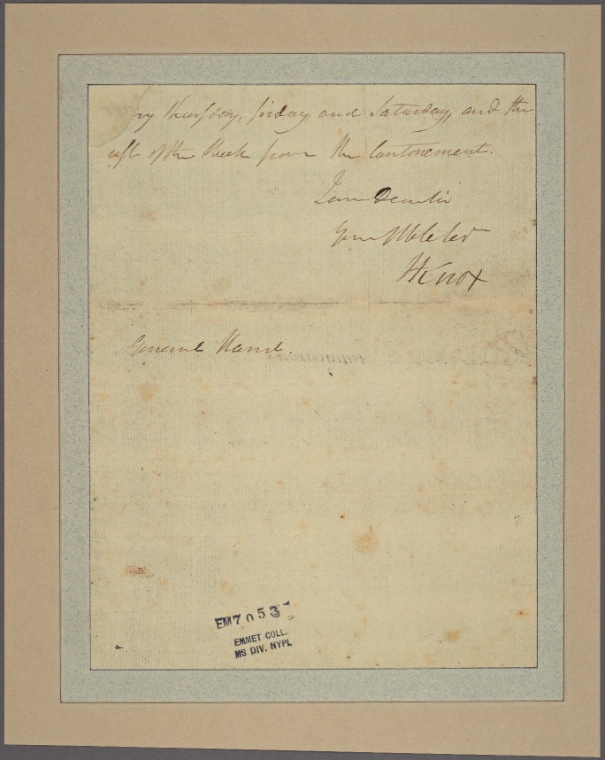 Thursday, friday, and Saturday, and the
of the Week from the Cantonement.
I am Dear Sir
Your
HKnox
General Hand.
EM7053
EMMET COLL.
MS DIV. NYPL